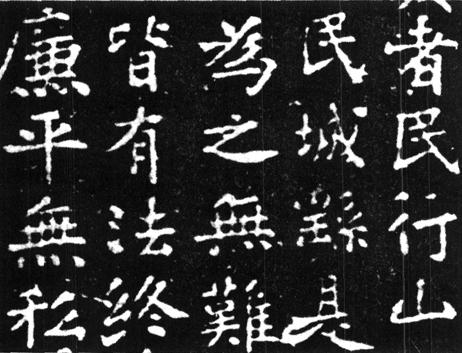 者民行山
民城繇是
為之無難
皆有法終
廉平無私